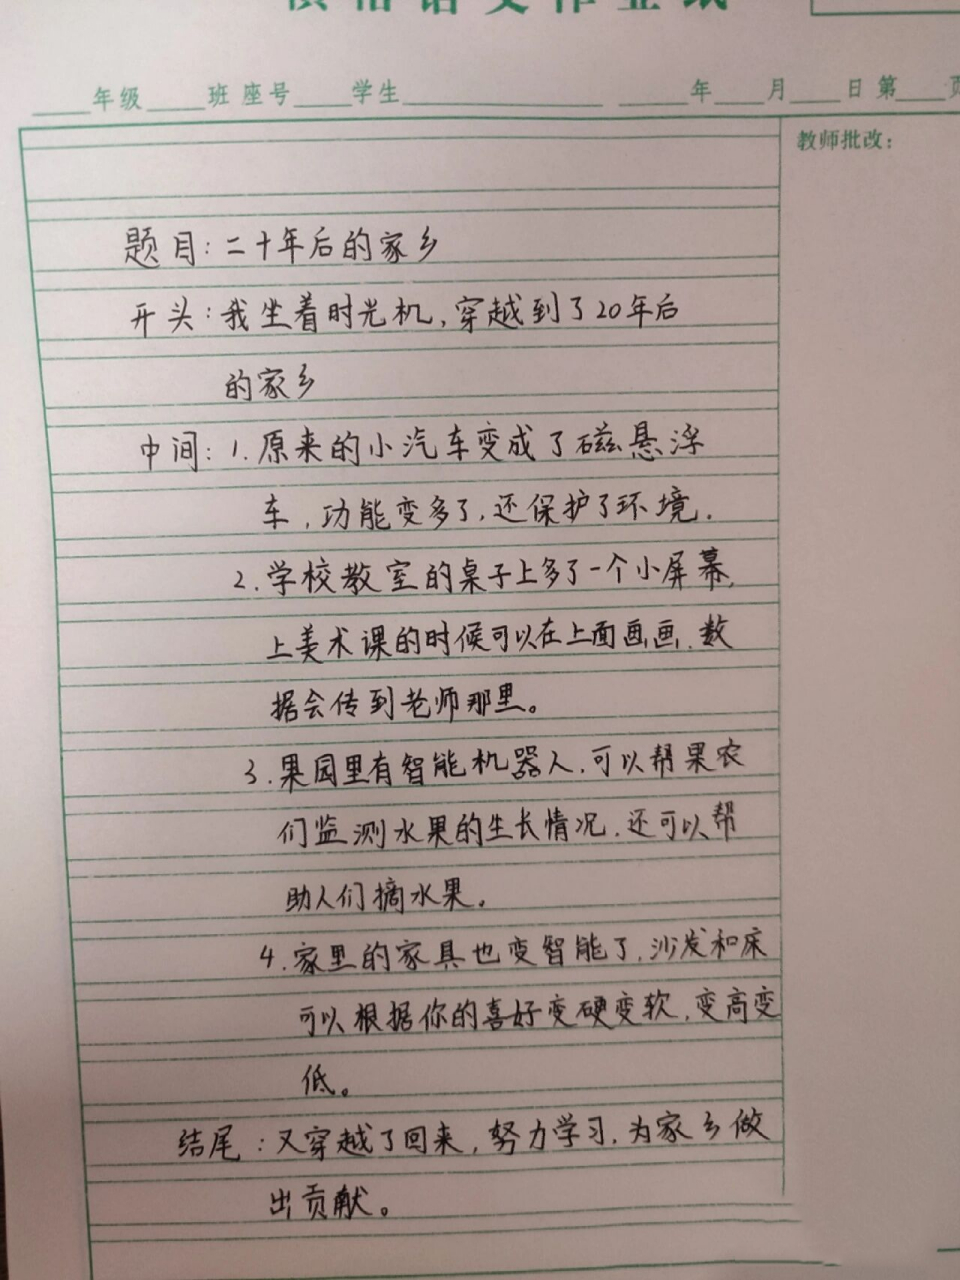 年级 班 座号 学生 年 月 日 第 页
教师批改：
题目：二十年后的家乡
开头：我坐着时光机，穿越到了20年后
的家乡
中间：1.原来的小汽车变成了磁悬浮
车，功能变多了，还保护了环境.
2.学校教室的桌子上多了一个小屏幕，
上美术课的时候可以在上面画画，数
据会传到老师那里。
3.果园里有智能机器人，可以帮果农
们监测水果的生长情况，还可以帮
助人们摘水果。
4.家里的家具也变智能了，沙发和床
可以根据你的喜好变硬变软，变高变
低。
结尾：又穿越了回来，努力学习，为家乡做
出贡献。